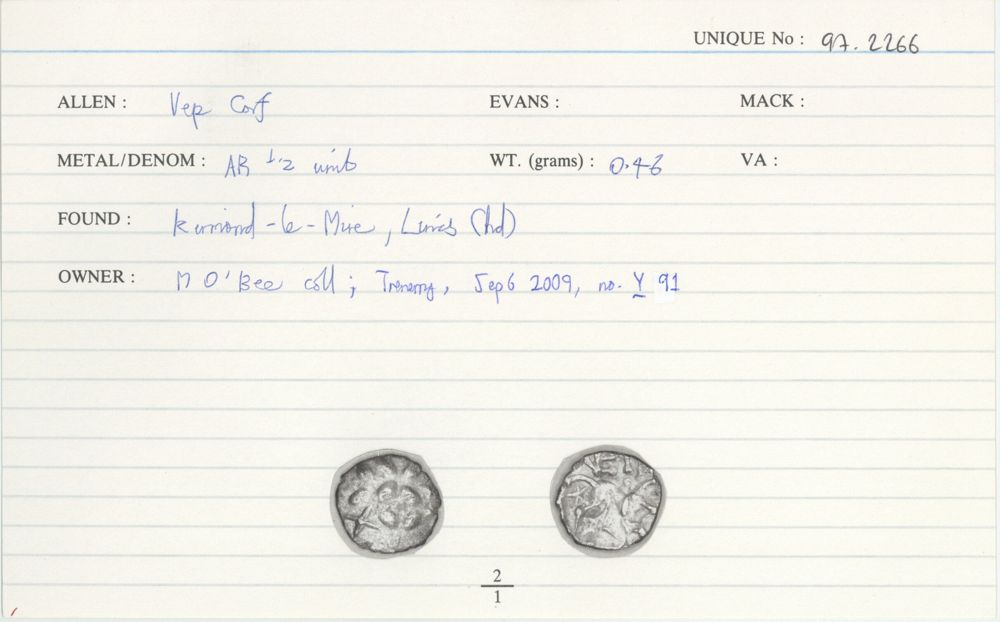 UNIQUE No : 97.2266
ALLEN : Vep Corf EVANS : MACK :
METAL/DENOM : AR 1/2 unit WT. (grams) : 0.46 VA :
FOUND : Kirmond-le-Mire, Lincs (hd)
OWNER : M O'Bee coll; , Sep 6 2009, no. Y 91
2
1